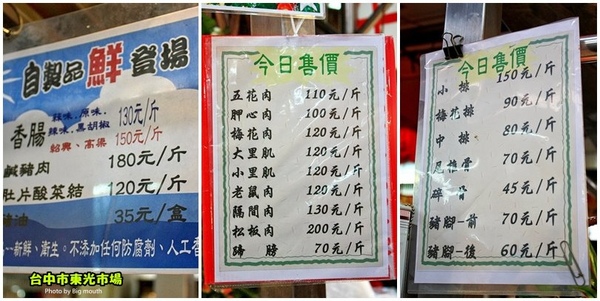 自製品鮮登場
蒜味,原味,
辣味,黑胡椒 130元/斤
香腸
紹興、高粱 150元/斤
鹹豬肉 180元/斤
肚片酸菜結 120元/斤
豬油 35元/盒
新鮮、衛生。不添加任何防腐劑、人工香
台中市東光市場
Photo by Big mouth
今日售價
五花肉 110元/斤
胛心肉 100元/斤
梅花肉 120元/斤
大里肌 120元/斤
小里肌 120元/斤
老鼠肉 120元/斤
隔間肉 130元/斤
松板肉 200元/斤
蹄膀 70元/斤
今日售價
小排 150元/斤
梅花排 90元/斤
中排 80元/斤
尾椎骨 70元/斤
碎骨 45元/斤
豬腳-前 70元/斤
豬腳-後 60元/斤